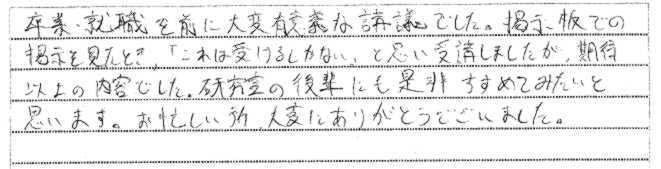 卒業・就職を前に大変有意義な講議でした。掲示板での
掲示を見たとき、「これは受けるしかない、と思い受講しましたが、期待
以上の内容でした。研究室の後輩にも是非すすめてみたいと
思います。お忙しい所、大変にありがとうございました。